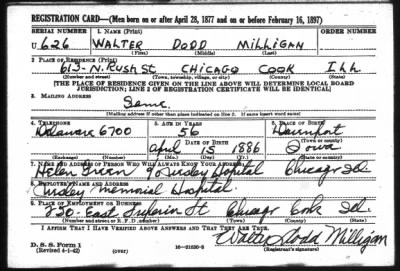 REGISTRATION CARD—(Men born on or after April 28, 1877 and on or before February 16, 1897)
SERIAL NUMBER 1. NAME (Print) ORDER NUMBER
U 626 WALTER DODD MILLIGAN
(First) (Middle) (Last)
2. PLACE OF RESIDENCE (Print)
613-N. Rush St CHICAGO COOK Ill
(Number and street) (Town, township, village, or city) (County) (State)
[THE PLACE OF RESIDENCE GIVEN ON THE LINE ABOVE WILL DETERMINE LOCAL BOARD
JURISDICTION; LINE 2 OF REGISTRATION CERTIFICATE WILL BE IDENTICAL]
3. MAILING ADDRESS
Same
[Mailing address if other than place indicated on line 2. If same insert word same]
4. TELEPHONE 5. AGE IN YEARS 6. PLACE OF BIRTH
Delaware 6700 56 Davenport
DATE OF BIRTH (Town or county)
April 15 1886 Iowa
(Exchange) (Number) (Mo.) (Day) (Yr.) (State or country)
7. NAME AND ADDRESS OF PERSON WHO WILL ALWAYS KNOW YOUR ADDRESS
Helen Hospital Chicago Ill.
8. EMPLOYER'S NAME AND ADDRESS
Memorial Hospital
9. PLACE OF EMPLOYMENT OR BUSINESS
250 East Superior St Chicago Cook Ill.
(Number and street or R. F. D. number) (Town) (County) (State)
I AFFIRM THAT I HAVE VERIFIED ABOVE ANSWERS AND THAT THEY ARE TRUE.
D. S. S. Form 1
(Revised 4-1-42) (over) 16—21630-2 Walter Dodd Milligan